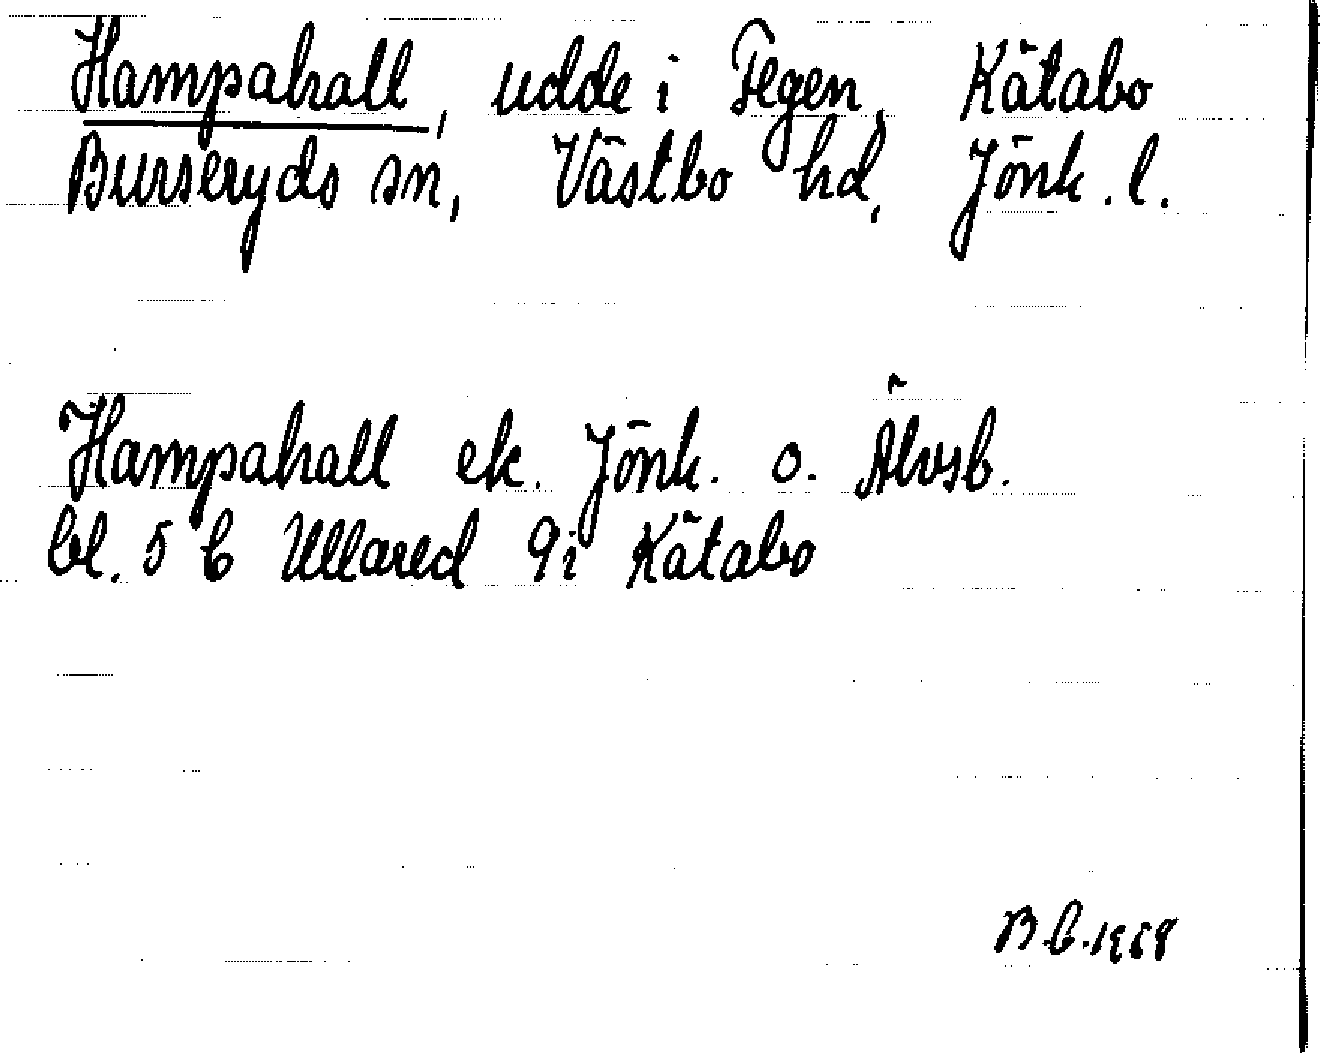 Hampahall, udde i Fegen, Kätabo
Burseryds sn, Västbo hd, Jönk. l.
Hampahall ek. Jönk. o. Älvsb.
bl. 5 C Ullared 9i Kätabo
B.C. 1968